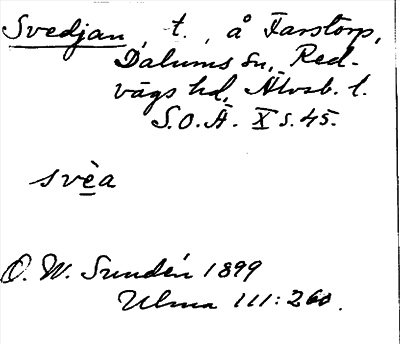 Svedjan, t., å Farstorp,
Dalums sn, Red-
vägs hd, Älvsb. l.
S.O.Ä. X s. 45.
svèa
O. W. Sundén 1899
Ulma 111:260.